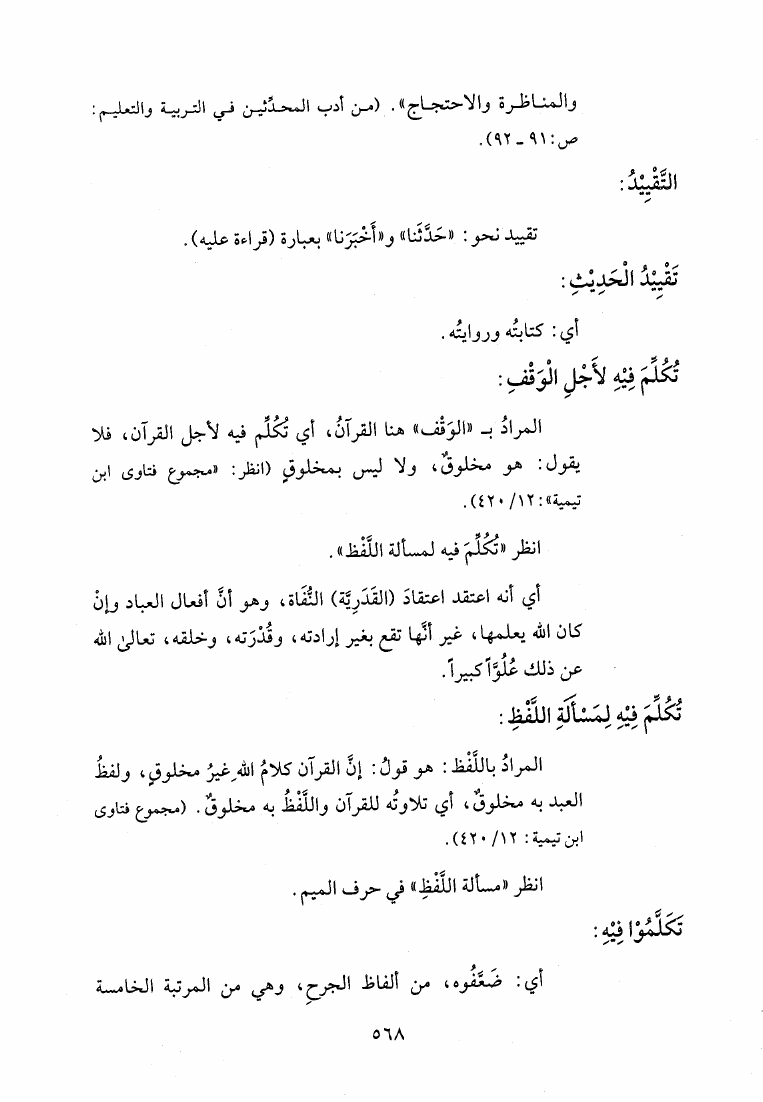 والمناظرة والاحتجاج». (من أدب المحدِّثين في التربية والتعليم:
ص: ٩١ ـ ٩٢).
التَّقْيِيْدُ:
تقييد نحو: «حَدَّثَنا» و«أَخْبَرَنا» بعبارة (قراءة عليه).
تَقْيِيْدُ الْحَدِيْثِ:
أي: كتابتُه وروايتُه.
تُكُلِّمَ فِيْهِ لأَجْلِ الْوَقْفِ:
المرادُ بـ «الوَقْف» هنا القرآنُ، أي تُكُلِّم فيه لأجل القرآن، فلا
يقول: هو مخلوقٌ، ولا ليس بمخلوقٍ (انظر: «مجموع فتاوى ابن
تيمية»: ١٢/ ٤٢٠).
انظر «تُكُلِّمَ فيه لمسألة اللَّفْظ».
أي أنه اعتقد اعتقادَ (القَدَرِيَّة) النُّفَاة، وهو أنَّ أفعال العباد وإنْ
كان الله يعلمها، غير أنَّها تقع بغير إرادته، وقُدْرَته، وخلقه، تعالىٰ الله
عن ذلك عُلُوَّاً كبيراً.
تُكُلِّمَ فِيْهِ لِمَسْأَلَةِ اللَّفْظِ:
المرادُ باللَّفْظ: هو قولُ: إنَّ القرآن كلامُ الله غيرُ مخلوقٍ، ولفظُ
العبد به مخلوقٌ، أي تلاوتُه للقرآن واللَّفْظُ به مخلوقٌ. (مجموع فتاوى
ابن تيمية: ١٢/ ٤٢٠).
انظر «مسألة اللَّفْظِ» في حرف الميم.
تَكَلَّمُوْا فِيْهِ:
أي: ضَعَّفُوه، من ألفاظ الجرحِ، وهي من المرتبة الخامسة
٥٦٨